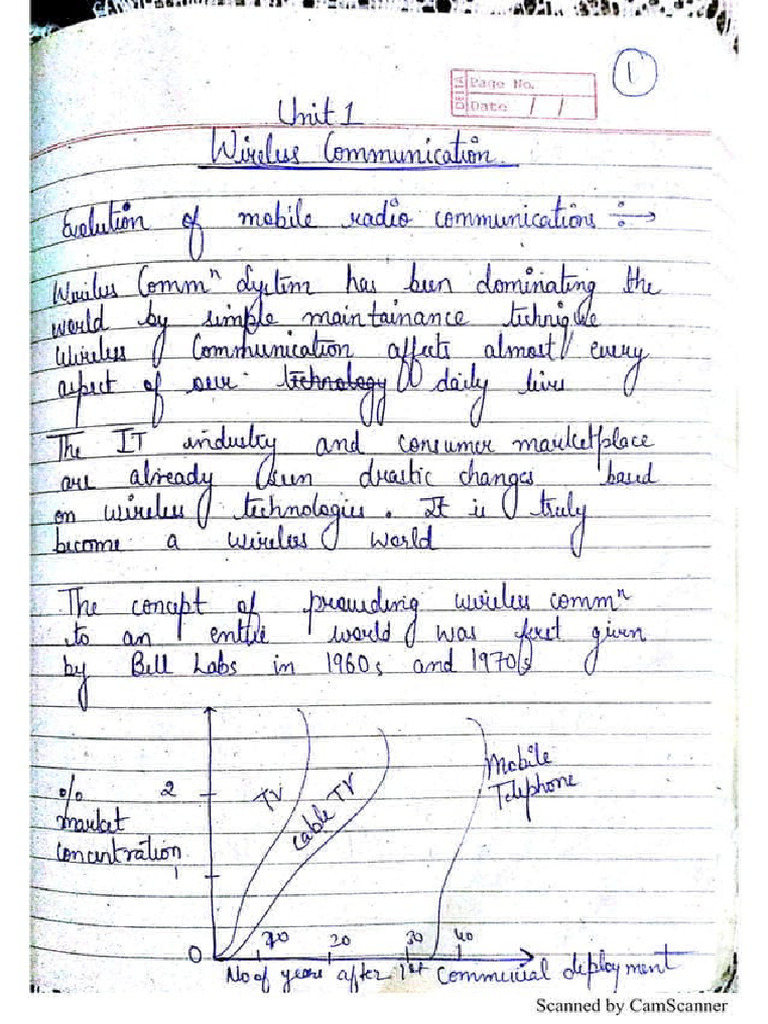 1
DELTA
Page No.
Date / /
Unit 1
Wireless Communication
Evolution of mobile radio communications ÷→
Wireless Commⁿ System has been dominating the
world by simple maintainance technique
Wireless Communication affects almost every
aspect of our technology daily lives
The IT industry and consumer marketplace
are already seen drastic changes based
on wireless technologies. It is truly
become a wireless world
The concept of providing wireless commⁿ
to an entire world was first given
by Bell Labs in 1960s and 1970s
% market concentration
2
1
0
TV
Cable TV
Mobile Telephone
10 20 30 40
No of years after 1st Commercial deployment
Scanned by CamScanner